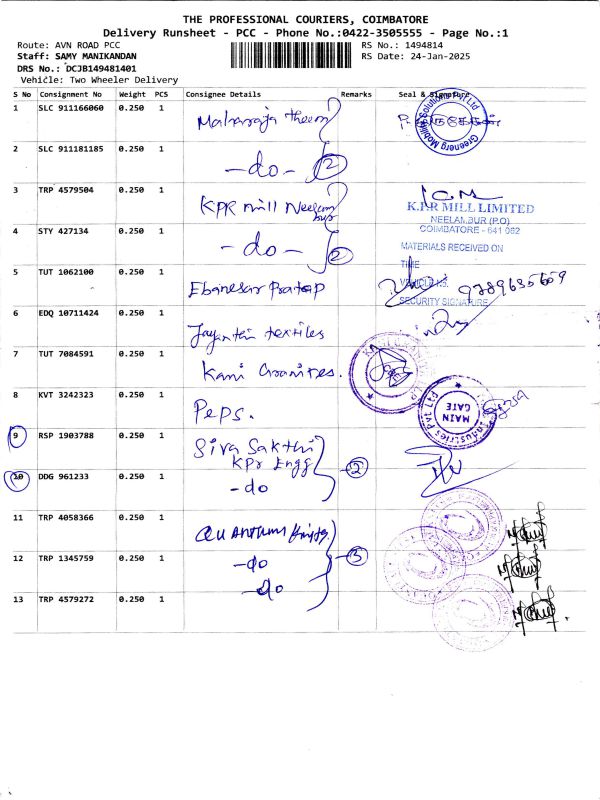 THE PROFESSIONAL COURIERS, COIMBATORE
Delivery Runsheet - PCC - Phone No.:0422-3505555 - Page No.:1
Route: AVN ROAD PCC
RS No.: 1494814
Staff: SAMY MANIKANDAN
RS Date: 24-Jan-2025
DRS No.: DCJB149481401
Vehicle: Two Wheeler Delivery
S No Consignment No Weight PCS Consignee Details Remarks Seal & Signature
1 SLC 911166060 0.250 1 Maharaja theem
2 SLC 911181185 0.250 1 -do- 2
Greenerg Mobility Solutions Pvt Ltd
3 TRP 4579504 0.250 1 KPR mill Neelam
K.P.R MILL LIMITED
NEELAMBUR (P.O)
COIMBATORE - 641 062
4 STY 427134 0.250 1 -do- 2
MATERIALS RECEIVED ON
TIME
VEHICLE NO.
SECURITY SIGNATURE
5 TUT 1062100 0.250 1 Ebanesar Pratap 9789635659
6 EDQ 10711424 0.250 1 Jayanthi textiles
7 TUT 7084591 0.250 1 Kani Granites.
8 KVT 3242323 0.250 1 Peps.
MAIN GATE
Industries Pvt. Ltd
9 RSP 1903788 0.250 1 Siva Sakthi
KPR Engg
10 DDG 961233 0.250 1 -do 2
11 TRP 4058366 0.250 1 QUANTUM Knits
12 TRP 1345759 0.250 1 -do 3
13 TRP 4579272 0.250 1 -do